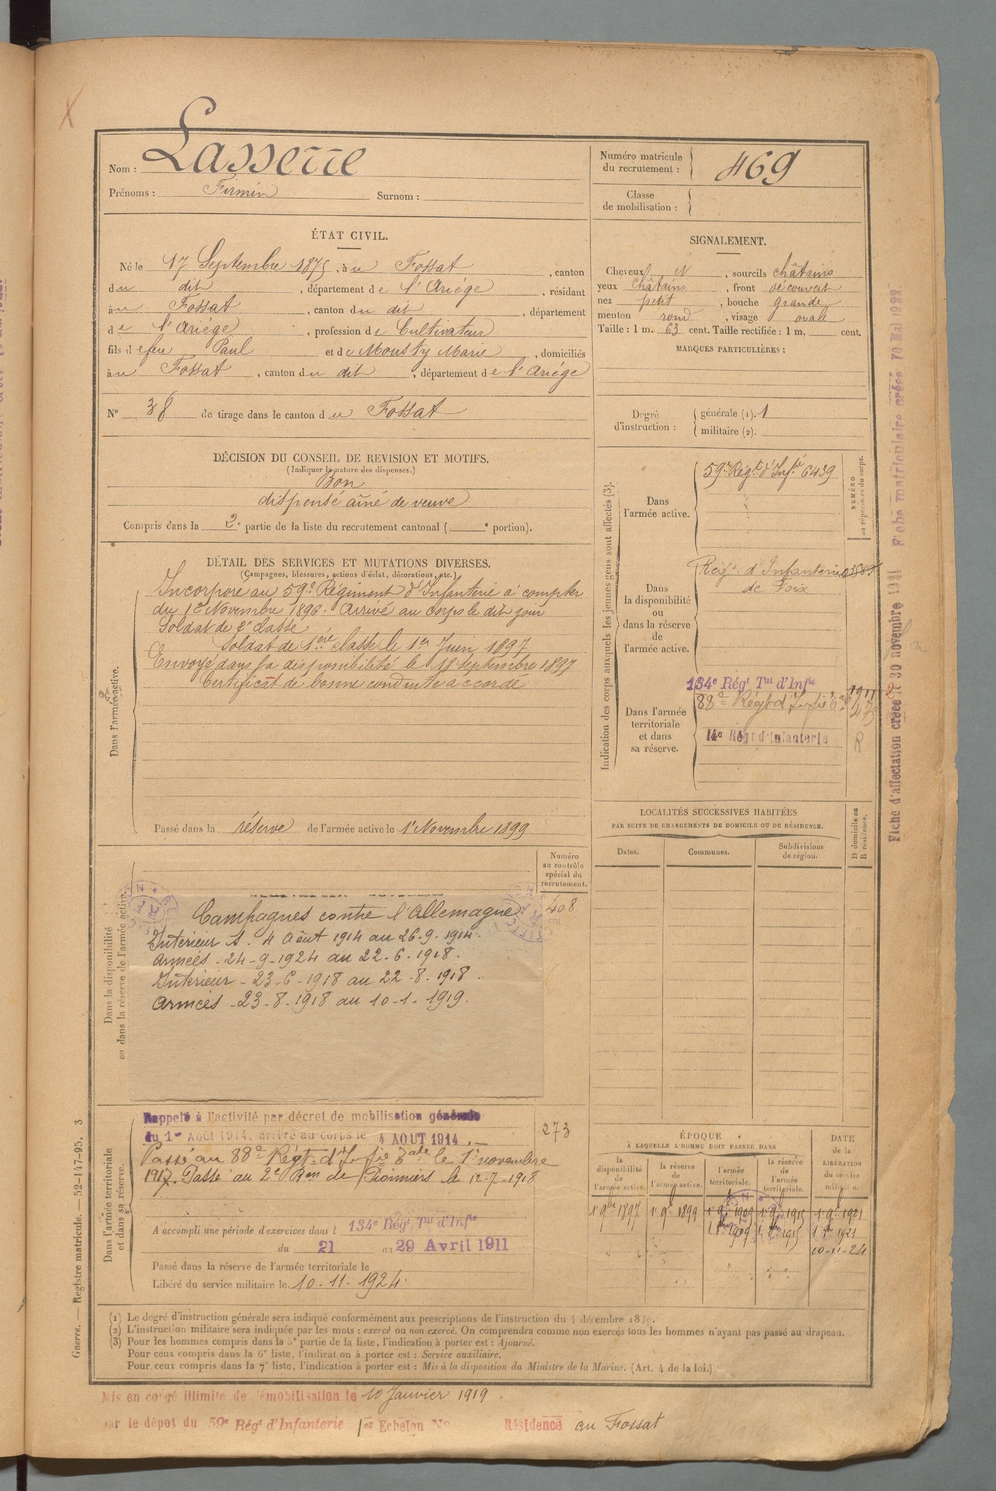 Nom : Lasserre
Prénoms : Firmin Surnom :
Numéro matricule du recrutement : 469
Classe de mobilisation :
ÉTAT CIVIL.
Né le 17 Septembre 1875, à u Fossat, canton
du dit, département de l'Ariège, résidant
à u Fossat, canton du dit, département
de l'Ariège, profession de Cultivateur
fils de feu Paul et de Mousty Marie, domiciliés
à u Fossat, canton du dit, département de l'Ariège
N° 38 de tirage dans le canton du Fossat
SIGNALEMENT.
Cheveux et, sourcils châtains
yeux châtains, front découvert
nez petit, bouche grande
menton rond, visage ovale
Taille : 1 m. 63 cent. Taille rectifiée : 1 m. cent.
MARQUES PARTICULIÈRES :
Degré d'instruction : générale (1). 1
militaire (2).
DÉCISION DU CONSEIL DE REVISION ET MOTIFS.
(Indiquer la nature des dispenses.)
Bon
dispensé aîné de veuve
Compris dans la 2e partie de la liste du recrutement cantonal ( e portion).
DÉTAIL DES SERVICES ET MUTATIONS DIVERSES.
(Campagnes, blessures, actions d'éclat, décorations, etc.)
Dans l'armée active.
Incorporé au 59e Régiment d'Infanterie à compter
du 1er Novembre 1896. Arrivé au corps le dit jour
Soldat de 2e classe
Soldat de 1ère classe le 1er Juin 1897
Envoyé dans la disponibilité le 18 Septembre 1897
Certificat de bonne conduite accordé
Passé dans la réserve de l'armée active le 1er Novembre 1899
Indication des corps auxquels les jeunes gens sont affectés (3).
NUMÉRO au répertoire du corps.
Dans l'armée active.
59e Régt d'Infie 6439
Dans la disponibilité ou dans la réserve de l'armée active.
Régt d'Infanterie
de Foix
Dans l'armée territoriale et dans sa réserve.
134e Régt Tal d'Infie
88e Régt d'Infie
14e Régt d'Infanterie
R
Fiche d'affectation créée le 30 novembre 1921
Fiche matriculaire créée
LOCALITÉS SUCCESSIVES HABITÉES
PAR SUITE DE CHANGEMENTS DE DOMICILE OU DE RÉSIDENCE.
Dates. Communes. Subdivisions de région. D domicile ou R résidence.
Dans la disponibilité ou dans la réserve de l'armée active.
Numéro au contrôle spécial du recrutement.
408
Campagnes contre l'Allemagne
Intérieur S. 4 Août 1914 au 26-9-1914.
Armées - 24-9-1924 au 22-6-1918.
Intérieur - 23-6-1918 au 22-8-1918.
Armées - 23-8-1918 au 10-1-1919.
Dans l'armée territoriale et dans sa réserve.
Rappelé à l'activité par décret de mobilisation générale
du 1er Août 1914, arrivé au corps le 4 AOUT 1914.
273
Passé au 88e Régt d'Infie tale le 1er novembre
1917. Passé au 2e Bon de Pionniers le 12-7-1918
A accompli une période d'exercices dans l 134e Régt Tal d'Infie
du 21 au 29 Avril 1911
Passé dans la réserve de l'armée territoriale le
Libéré du service militaire le 10-11-1924.
ÉPOQUE
À LAQUELLE L'HOMME DOIT PASSER DANS
la disponibilité de l'armée active.
la réserve de l'armée active.
l'armée territoriale.
la réserve de l'armée territoriale.
DATE de la LIBÉRATION du service militaire.
1er 9bre 1897 1er 9e 1899 1er 9e 1909 1er 9e 1915 1er 9e 1921
10-11-24
(1) Le degré d'instruction générale sera indiqué conformément aux prescriptions de l'instruction du 4 décembre 1889.
(2) L'instruction militaire sera indiquée par les mots : exercé ou non exercé. On comprendra comme non exercés tous les hommes n'ayant pas passé au drapeau.
(3) Pour les hommes compris dans la 5e partie de la liste, l'indication à porter est : Ajourné.
Pour ceux compris dans la 6e liste, l'indication à porter est : Service auxiliaire.
Pour ceux compris dans la 7e liste, l'indication à porter est : Mis à la disposition du Ministre de la Marine. (Art. 4 de la loi.)
Guerre. — Registre matricule. — 52-147-95. 3
Mis en congé illimité de démobilisation le 10 Janvier 1919
par le dépôt du 59e Régt d'Infanterie 1er Echelon N° Résidence au Fossat